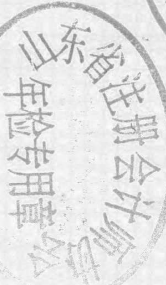 山东省注册会计师协会
年检专用章